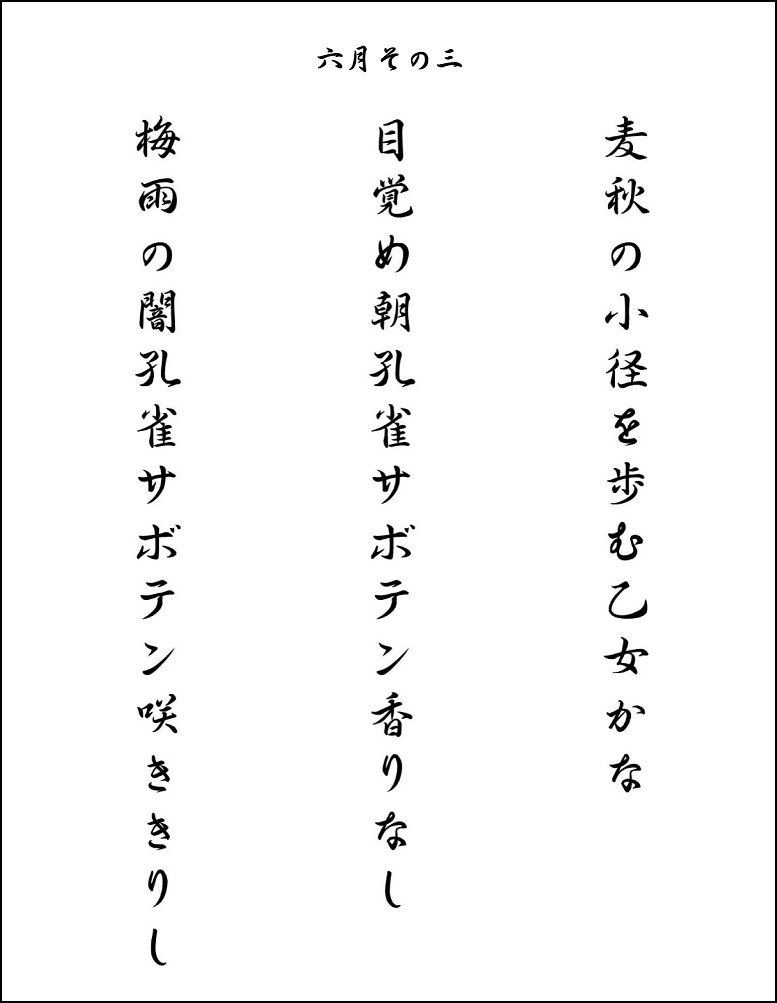 六月その三
麦秋の小径を歩む乙女かな
目覚め朝孔雀サボテン香りなし
梅雨の闇孔雀サボテン咲ききりし